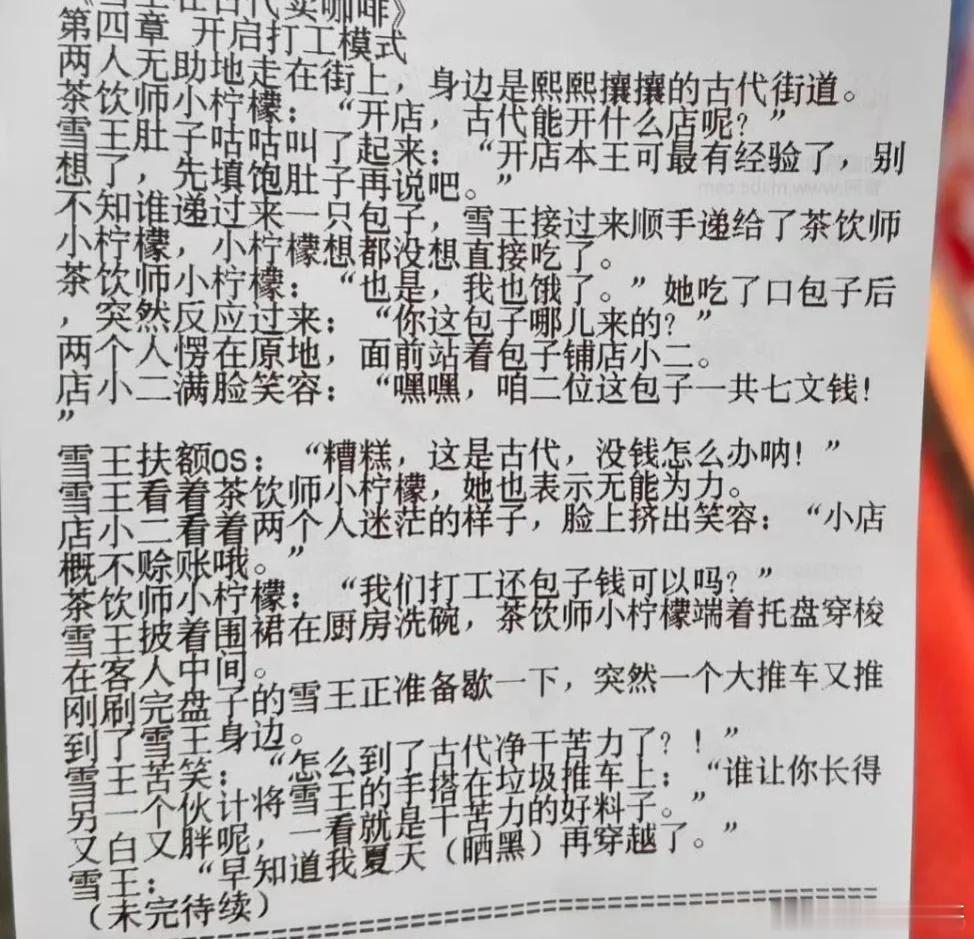 在古代卖咖啡》
第四章 开启打工模式
两人无助地走在街上，身边是熙熙攘攘的古代街道。
茶饮师小柠檬：“开店，古代能开什么店呢？”
雪王肚子咕咕叫了起来：“开店本王可最有经验了，别
想了，先填饱肚子再说吧。”
不知谁递过来一只包子，雪王接过来顺手递给了茶饮师
小柠檬，小柠檬想都没想直接吃了。
茶饮师小柠檬：“也是，我也饿了。”她吃了口包子后
，突然反应过来：“你这包子哪儿来的？”
两个人愣在原地，面前站着包子铺店小二。
店小二满脸笑容：“嘿嘿，咱二位这包子一共七文钱！
”
雪王扶额OS：“糟糕，这是古代，没钱怎么办呐！”
雪王看着茶饮师小柠檬，她也表示无能为力。
店小二看着两个人迷茫的样子，脸上挤出笑容：“小店
概不赊账哦。”
茶饮师小柠檬：“我们打工还包子钱可以吗？”
雪王披着围裙在厨房洗碗，茶饮师小柠檬端着托盘穿梭
在客人中间。
刚刷完盘子的雪王正准备歇一下，突然一个大推车又推
到了雪王身边。
雪王苦笑：“怎么到了古代净干苦力了？！”
另一个伙计将雪王的手搭在垃圾推车上：“谁让你长得
又白又胖呢，一看就是干苦力的好料子。”
雪王：“早知道我夏天（晒黑）再穿越了。”
（未完待续）